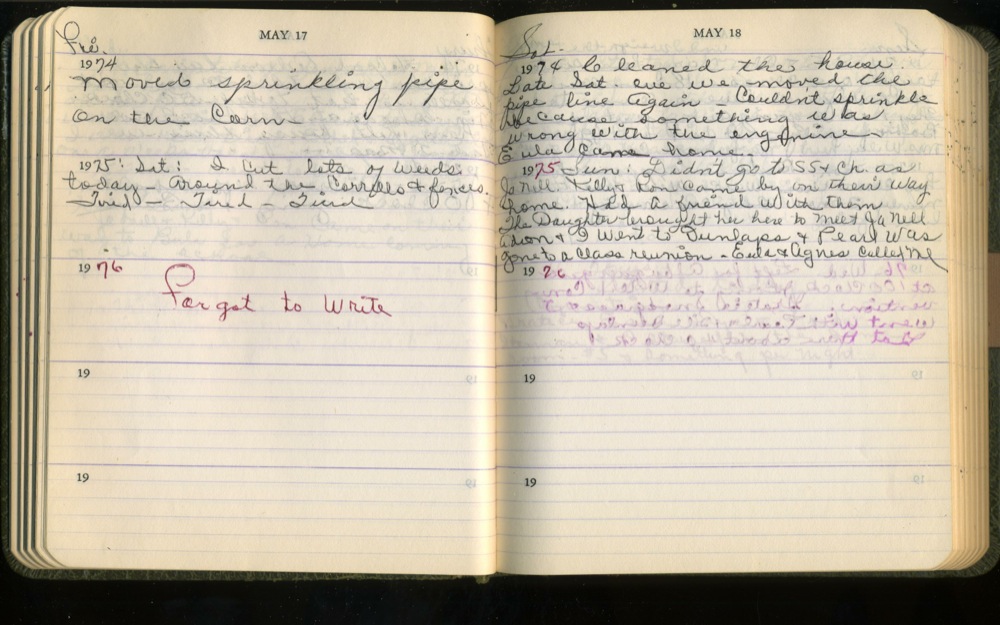 MAY 17
Fri.
1974
Moved sprinkling pipe
on the Corn
1975: Sat: I Cut lots of Weeds
today - Around the Corrells & fences.
Tired - Tired - Tired
1976
Forgot to Write
19
19
MAY 18
Sat.
1974 Cleaned the house.
Late Sat. eve we moved the
pipe line again - Couldn't sprinkle
because something was
wrong with the engine
Eula Came home.
1975 Sun: Didn't go to SS & Ch. as
Ja Nell, & Ron came by on their way
home. Had A friend with them
The Daughter brought her here to meet Ja Nell
& I Went to Dunlaps & Pearl Was
gone to a Class reunion - Eula & Agnes Called me
1976
19
19